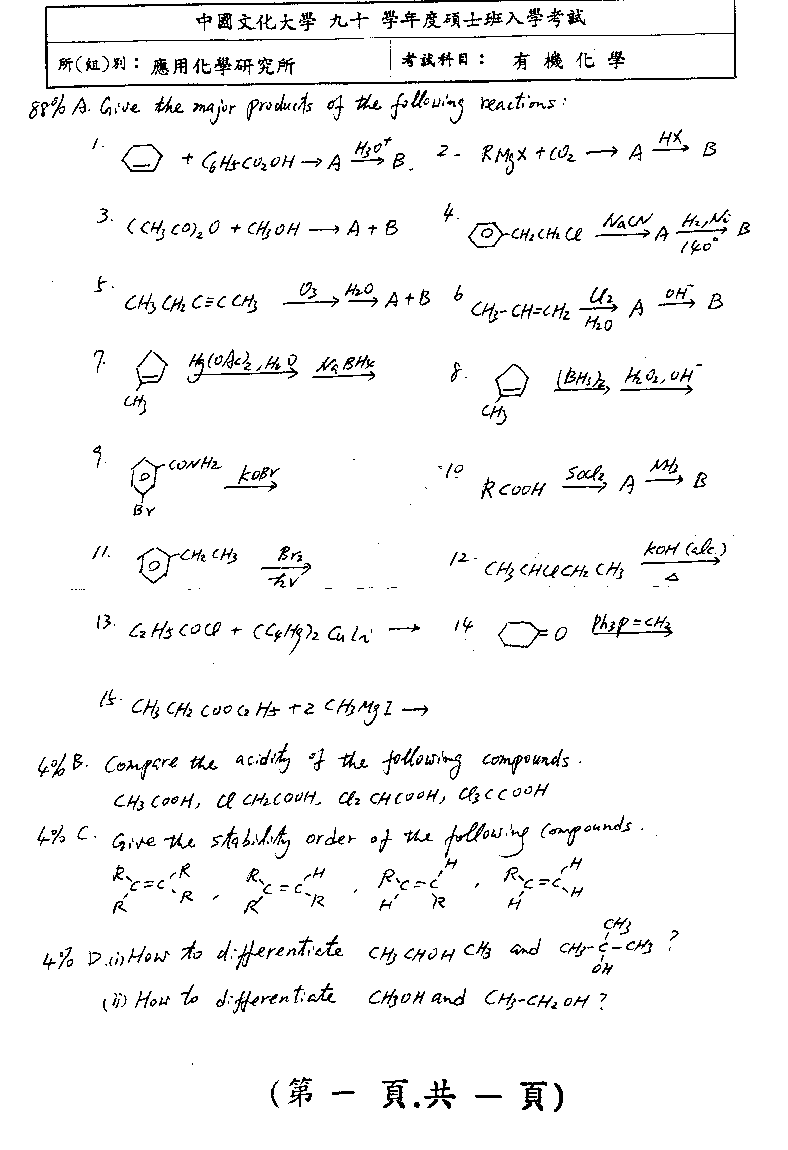 中國文化大學 九十 學年度碩士班入學考試
所(組)別: 應用化學研究所 考試科目: 有機化學
88% A. Give the major products of the following reactions:
1. + C6H5CO2OH → A H3O+ → B. 2- RMgX + CO2 → A HX → B
3. (CH3CO)2O + CH3OH → A + B 4. -CH2CH2Cl NaCN → A H2, Ni 140° → B
5. CH3CH2C≡CCH3 O3 → H2O → A + B 6 CH3-CH=CH2 Cl2 H2O → A OH- → B
7. CH3 Hg(OAc)2, H2O → NaBH4 → 8. CH3 (BH3)2 → H2O2, OH- →
9. CONH2 Br KOBr → 10 RCOOH SOCl2 → A NH3 → B
11. -CH2CH3 Br2 hν → 12. CH3CHClCH2CH3 KOH (alc.) △ →
13. C2H5COCl + (C4H9)2CuLi → 14 =O Ph3P=CH2 →
15. CH3CH2COOC2H5 + 2 CH3MgI →
4% B. Compare the acidity of the following compounds.
CH3COOH, ClCH2COOH, Cl2CHCOOH, Cl3CCOOH
4% C. Give the stability order of the following compounds.
R R C=C R R , R H C=C R R , R H C=C H R , R H C=C H H
4% D.(i) How to differentiate CH3CHOHCH3 and CH3-C-CH3 CH3 OH ?
(ii) How to differentiate CH3OH and CH3-CH2OH ?
(第一頁.共一頁)